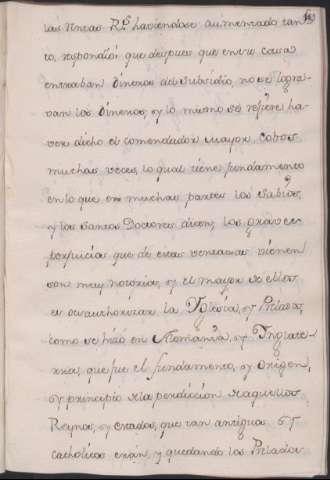 las Rentas R.s haviendose aumentado tan
to, respondiò: que despues que en su casa
entraban dineros del subsidio, no se logra
van los dineros, y lo mismo se refiere ha
ver dicho el comendador mayor Cobos
muchas veces, lo qual tiene fundamento
en lo que en muchas partes los sabios,
y los santos Doctores dicen; los graves
perjuicios que de estas ventas vienen
son muy notorios, y el mayor de ellos
es desauthorizar la Yglesia, y Prelados,
como se hizo en Alemania, y Ynglate
rra, que fue el fundamento, y origen,
y principio de la perdicion de aquellos
Reynos, y estados, que tan antiguos y
catholicos eran, y quedando los Prelados